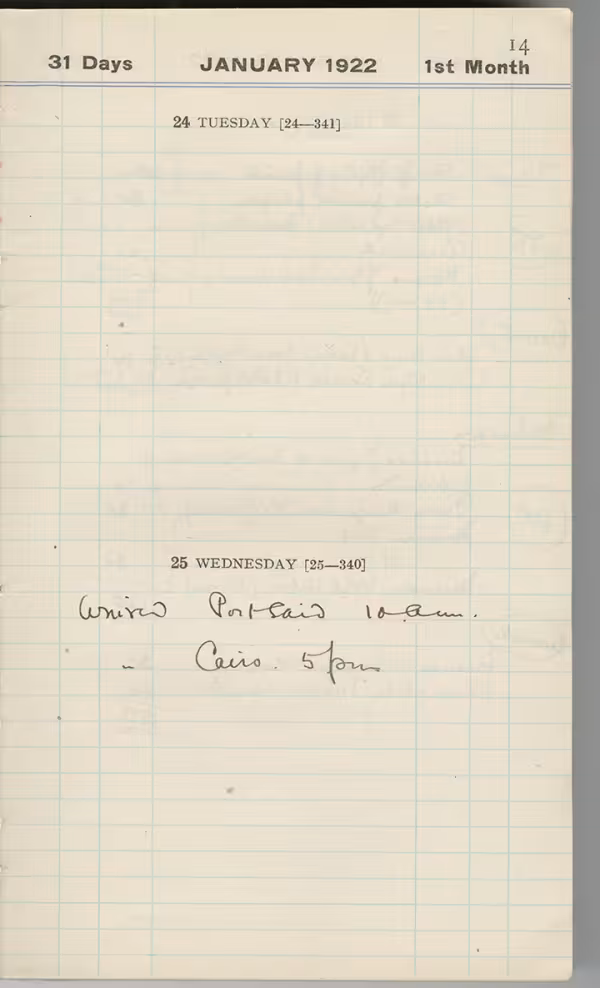 14
31 Days JANUARY 1922 1st Month
24 TUESDAY [24—341]
25 WEDNESDAY [25—340]
Arrived Port Said 10 a.m.
" Cairo. 5 pm